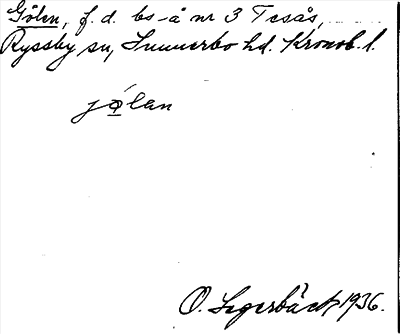 Gölen, f. d. bs-å nr 3 Tesås,
Ryssby sn, Sunnerbo hd. Kronob. l.
jǫ́lan
O. Segerbäck 1936.